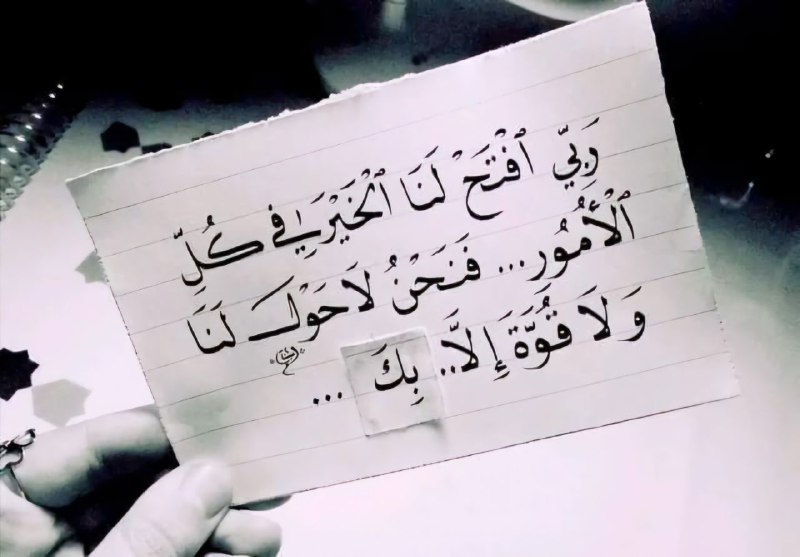 رَبِّي ٱفْتَحْ لَنَا ٱلْخَيْرَ فِي كُلِّ
ٱلْأُمُورِ... فَنَحْنُ لَا حَوْلَ لَنَا
وَلَا قُوَّةَ إِلَّا.. بِكَ ...